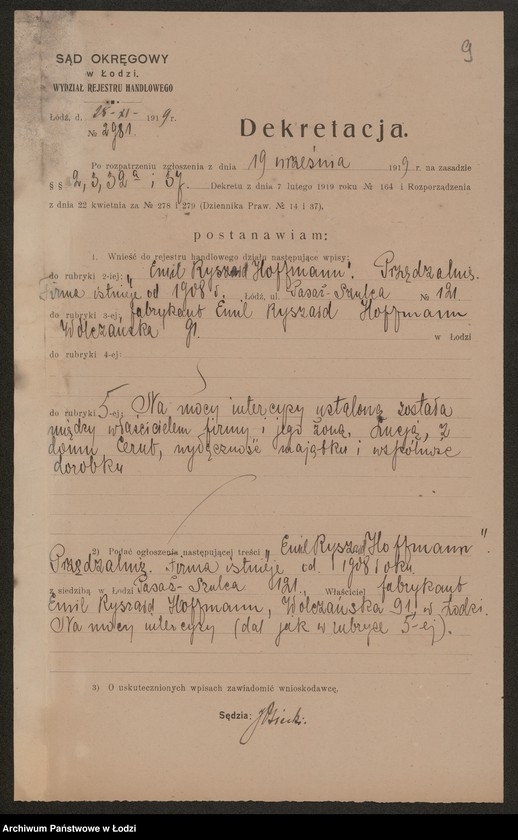 9
SĄD OKRĘGOWY
w Łodzi.
WYDZIAŁ REJESTRU HANDLOWEGO
Łódź, d. 28-XI- 1919 r.
№ 2981.
Dekretacja.
Po rozpatrzeniu zgłoszenia z dnia 19 września 1919 r. na zasadzie
§ § 2, 3, 32a i 37. Dekretu z dnia 7 lutego 1919 roku № 164 i Rozporządzenia
z dnia 22 kwietnia za № 278 i 279 (Dziennika Praw. № 14 i 37),
postanawiam:
1. Wnieść do rejestru handlowego działu następujące wpisy:
do rubryki 2-iej: „Emil Ryszard Hoffmann". Przędzalnię.
Firma istnieje od 1908 r. Łódź, ul. Pasaż-Szulca № 121
do rubryki 3-ej, fabrykant Emil Ryszard Hoffmann
Wólczańska 91. w Łodzi
do rubryki 4-ej:
do rubryki 5-ej: Na mocy intercyzy ustaloną została
między właścicielem firmy i jego żoną, Łucją, z
domu Cerut, wyłączność majątku i wspólność
dorobku
2) Podać ogłoszenia następującej treści „Emil Ryszard Hoffmann".
Przędzalnię. Firma istnieje od 1908 roku.
z siedzibą w Łodzi Pasaż-Szulca 121., Właściciel fabrykant
Emil Ryszard Hoffmann, Wólczańska 91 w Łodzi.
Na mocy intercyzy (dal jak w rubryce 5-ej).
3) O uskutecznionych wpisach zawiadomić wnioskodawcę.
Sędzia:
Archiwum Państwowe w Łodzi